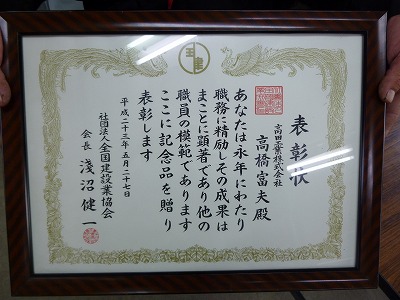 表彰状
高田工業株式会社
高橋富夫殿
あなたは永年にわたり
職務に精励しその成果は
まことに顕著であり他の
職員の模範であります
ここに記念品を贈り
表彰します
平成二十三年五月二十七日
社団法人全国建設業協会
会長 淺沼健一